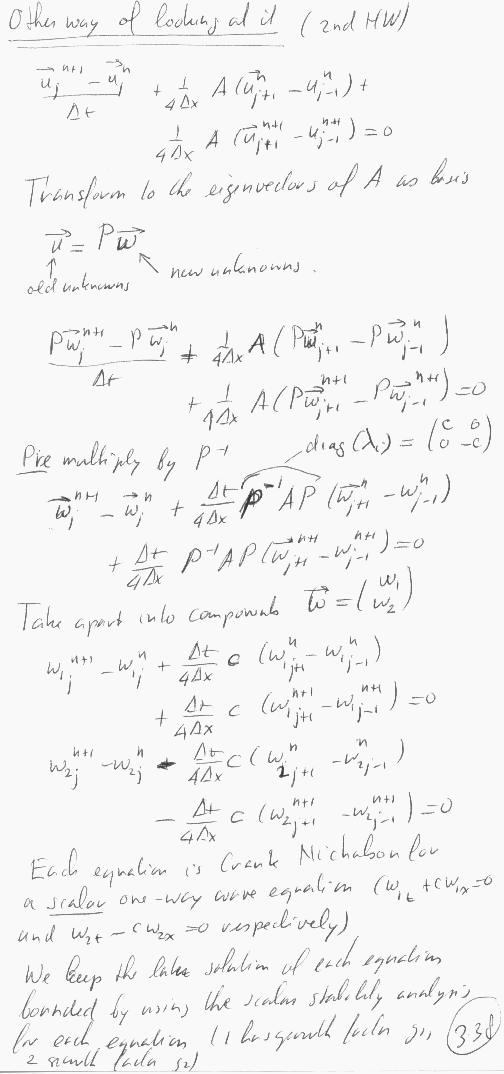 Other way of looking at it (2nd HW)
(u⃗_j^{n+1} - u⃗_j^n)/Δt + 1/(4Δx) A (u⃗_{j+1}^n - u_{j-1}^n) +
1/(4Δx) A (u⃗_{j+1}^{n+1} - u_{j-1}^{n+1}) = 0
Transform to the eigenvectors of A as basis
u⃗ = P w⃗
old unknowns new unknowns.
(P w⃗_j^{n+1} - P w⃗_j^n)/Δt + 1/(4Δx) A (P w⃗_{j+1}^n - P w⃗_{j-1}^n)
+ 1/(4Δx) A (P w⃗_{j+1}^{n+1} - P w⃗_{j-1}^{n+1}) = 0
Pre multiply by P^{-1} diag(λ_i) = (c 0
0 -c)
w⃗_j^{n+1} - w⃗_j^n + Δt/(4Δx) P^{-1} A P (w⃗_{j+1}^n - w_{j-1}^n)
+ Δt/(4Δx) P^{-1} A P (w⃗_{j+1}^{n+1} - w_{j-1}^{n+1}) = 0
Take apart into components w⃗ = (w_1
w_2)
w_{1j}^{n+1} - w_{1j}^n + Δt/(4Δx) c (w_{1j+1}^n - w_{1j-1}^n)
+ Δt/(4Δx) c (w_{1j+1}^{n+1} - w_{1j-1}^{n+1}) = 0
w_{2j}^{n+1} - w_{2j}^n - Δt/(4Δx) c (w_{2j+1}^n - w_{2j-1}^n)
- Δt/(4Δx) c (w_{2j+1}^{n+1} - w_{2j-1}^{n+1}) = 0
Each equation is Crank Nicholson for
a scalar one-way wave equation (w_{1t} + c w_{1x} = 0
and w_{2t} - c w_{2x} = 0 respectively)
We keep the solution of each equation
bounded by using the scalar stability analysis
for each equation (1 has growth factor g_1,
2 growth factor g_2)
338